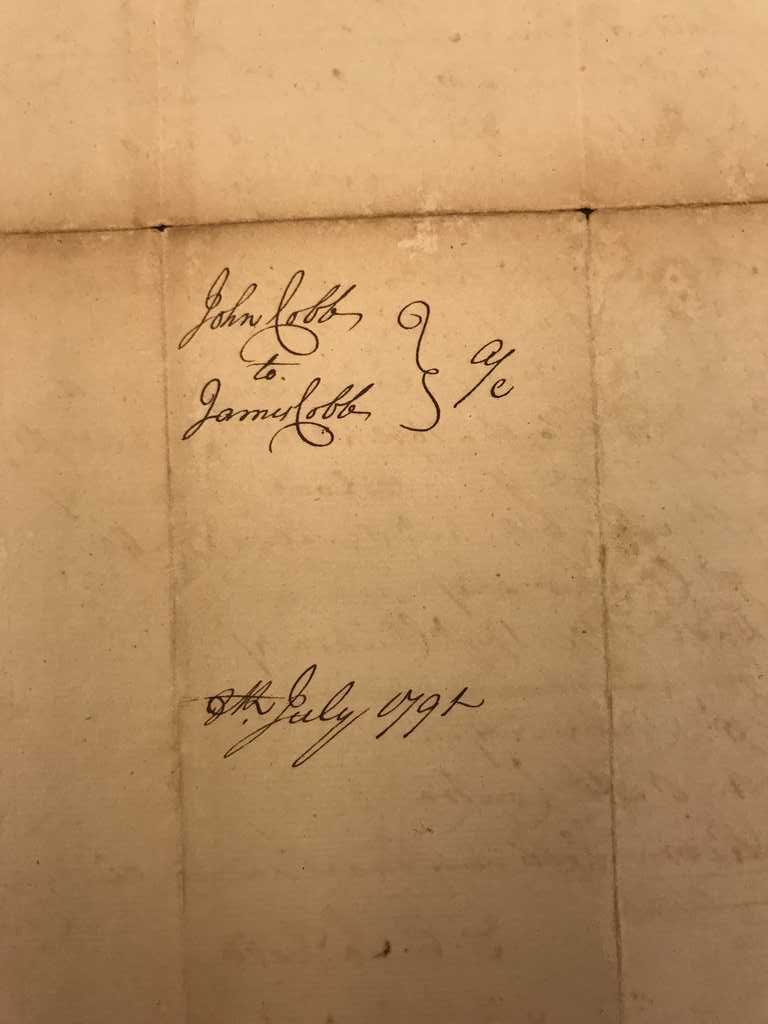 John Cobb
to
James Cobb
} a/c
8th. July 1791